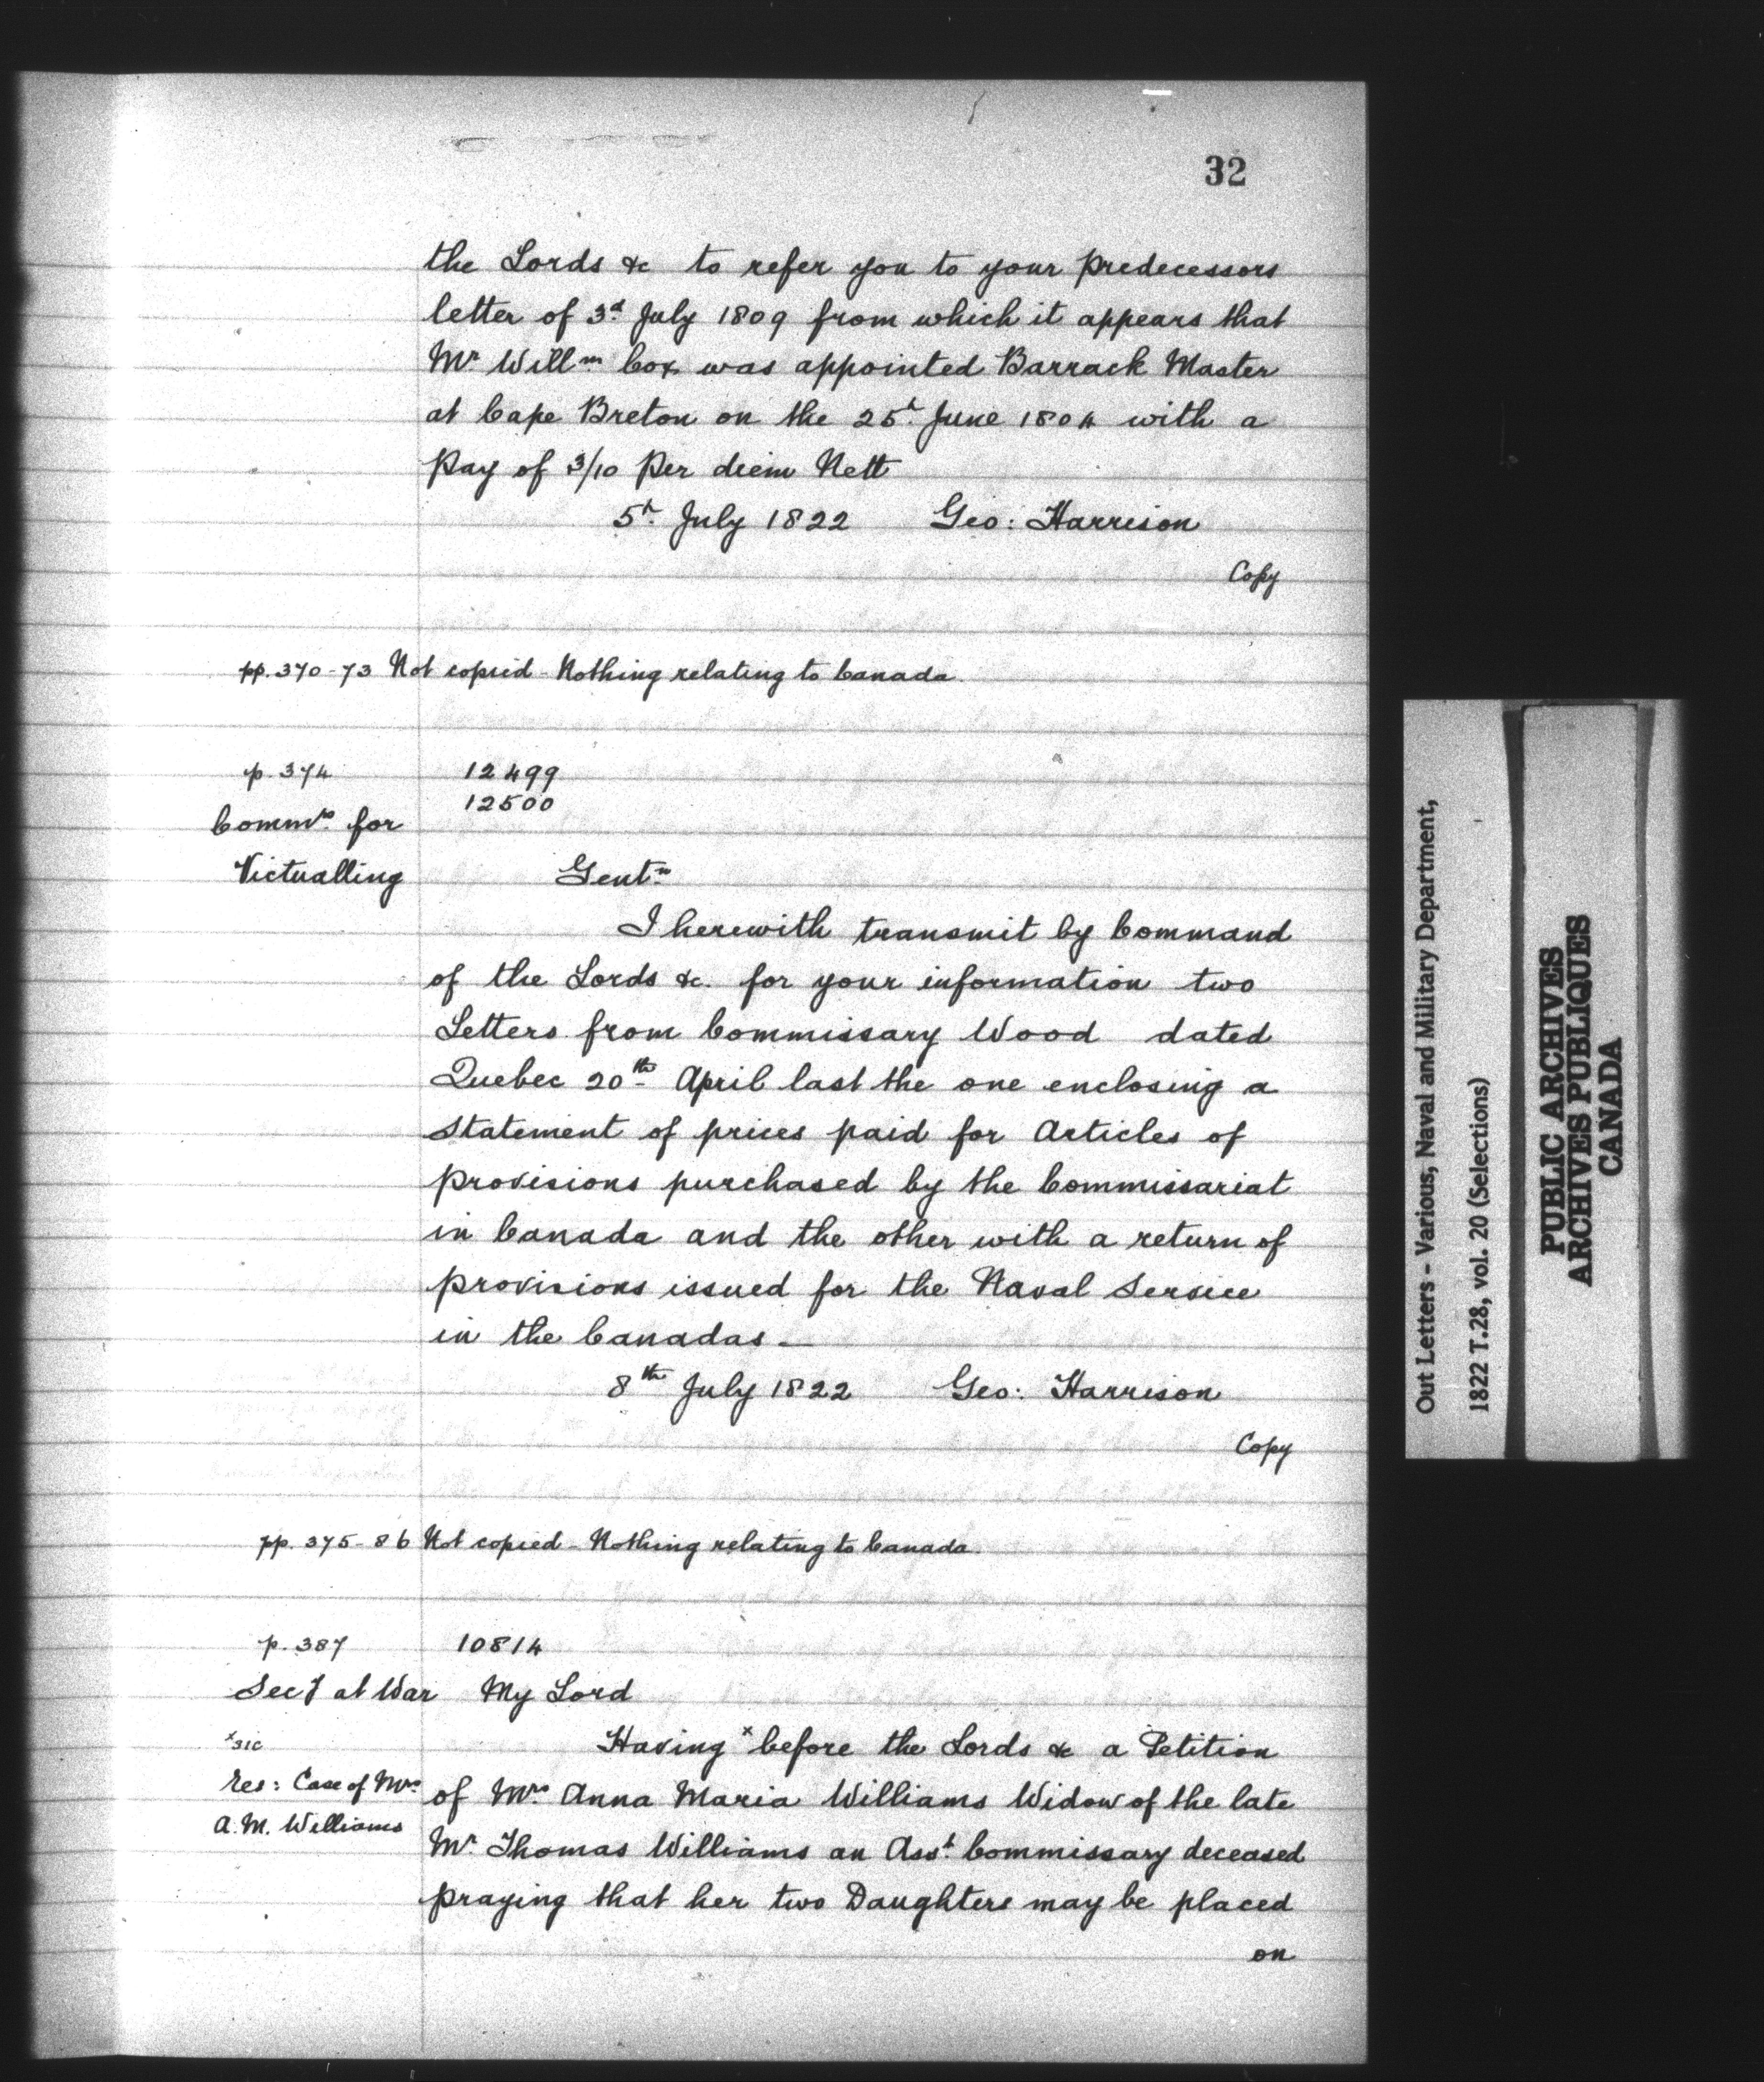 32
the Lords &c to refer you to your predecessors
letter of 3d July 1809 from which it appears that
Mr Willm Cox was appointed Barrack Master
at Cape Breton on the 25th June 1804 with a
pay of 3/10 Per diem Nett
5th July 1822 Geo: Harrison
Copy
pp. 370-73 Not copied - Nothing relating to Canada.
p. 374 12499
12500
Commrs for
Victualling Gentn
I herewith transmit by Command
of the Lords &c. for your information two
Letters from Commissary Wood dated
Quebec 20th April last the one enclosing a
Statement of prices paid for Articles of
provisions purchased by the Commissariat
in Canada and the other with a return of
provisions issued for the Naval Service
in the Canadas -
8th July 1822 Geo: Harrison
Copy
pp. 375-86 Not copied - Nothing relating to Canada.
p. 387 10814
Secy at War My Lord
Having x before the Lords &c a Petition
x sic
res: Case of Mrs
A.M. Williams
of Mrs Anna Maria Williams Widow of the late
Mr Thomas Williams an Asst Commissary deceased
praying that her two Daughters may be placed
on
Out Letters - Various, Naval and Military Department,
1822 T.28, vol. 20 (Selections)
PUBLIC ARCHIVES
ARCHIVES PUBLIQUES
CANADA